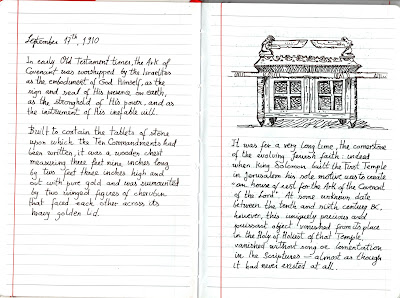 September 17th, 1910
In early Old Testament times, the Ark of
Covenant was worshipped by the Israelites
as the embodiment of God Himself, as the
sign and seal of His presence on earth,
as the stronghold of His power, and as
the instrument of His ineffable will.
Built to contain the tablets of stone
upon which the Ten Commandments had
been written, it was a wooden chest
measuring three feet nine inches long
by two feet three inches high and
out with pure gold and was surmounted
by two winged figures of cherubim
that faced each other across its
heavy golden lid.
It was for a very long time, the cornerstone
of the evolving Jewish faith: indeed
when King Solomon built the First Temple
in Jerusalem his sole motive was to create
"an house of rest for the Ark of the Covenant
of the Lord". At some unknown date
between the tenth and sixth century BC,
however, this uniquely precious and
puissant object vanished from its place
in the Holy of Holies of that Temple,
vanished without song or lamentation
in the Scriptures – almost as though
it had never existed at all.